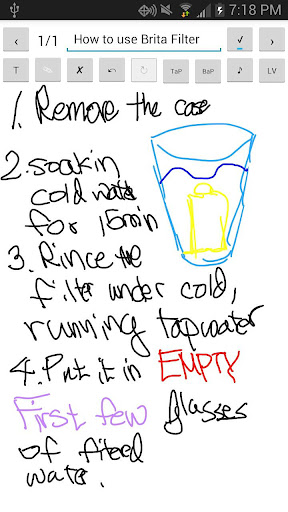 7:18 PM
‹ 1/1 How to use Brita Filter ✓ ›
T TaP BaP ♪ LV
1. Remove the case
2. soak in
cold water
for 15min
3. Rince the
filter under cold,
running tap water
4. Put it in EMPTY
First few glasses
of fiteed
water.